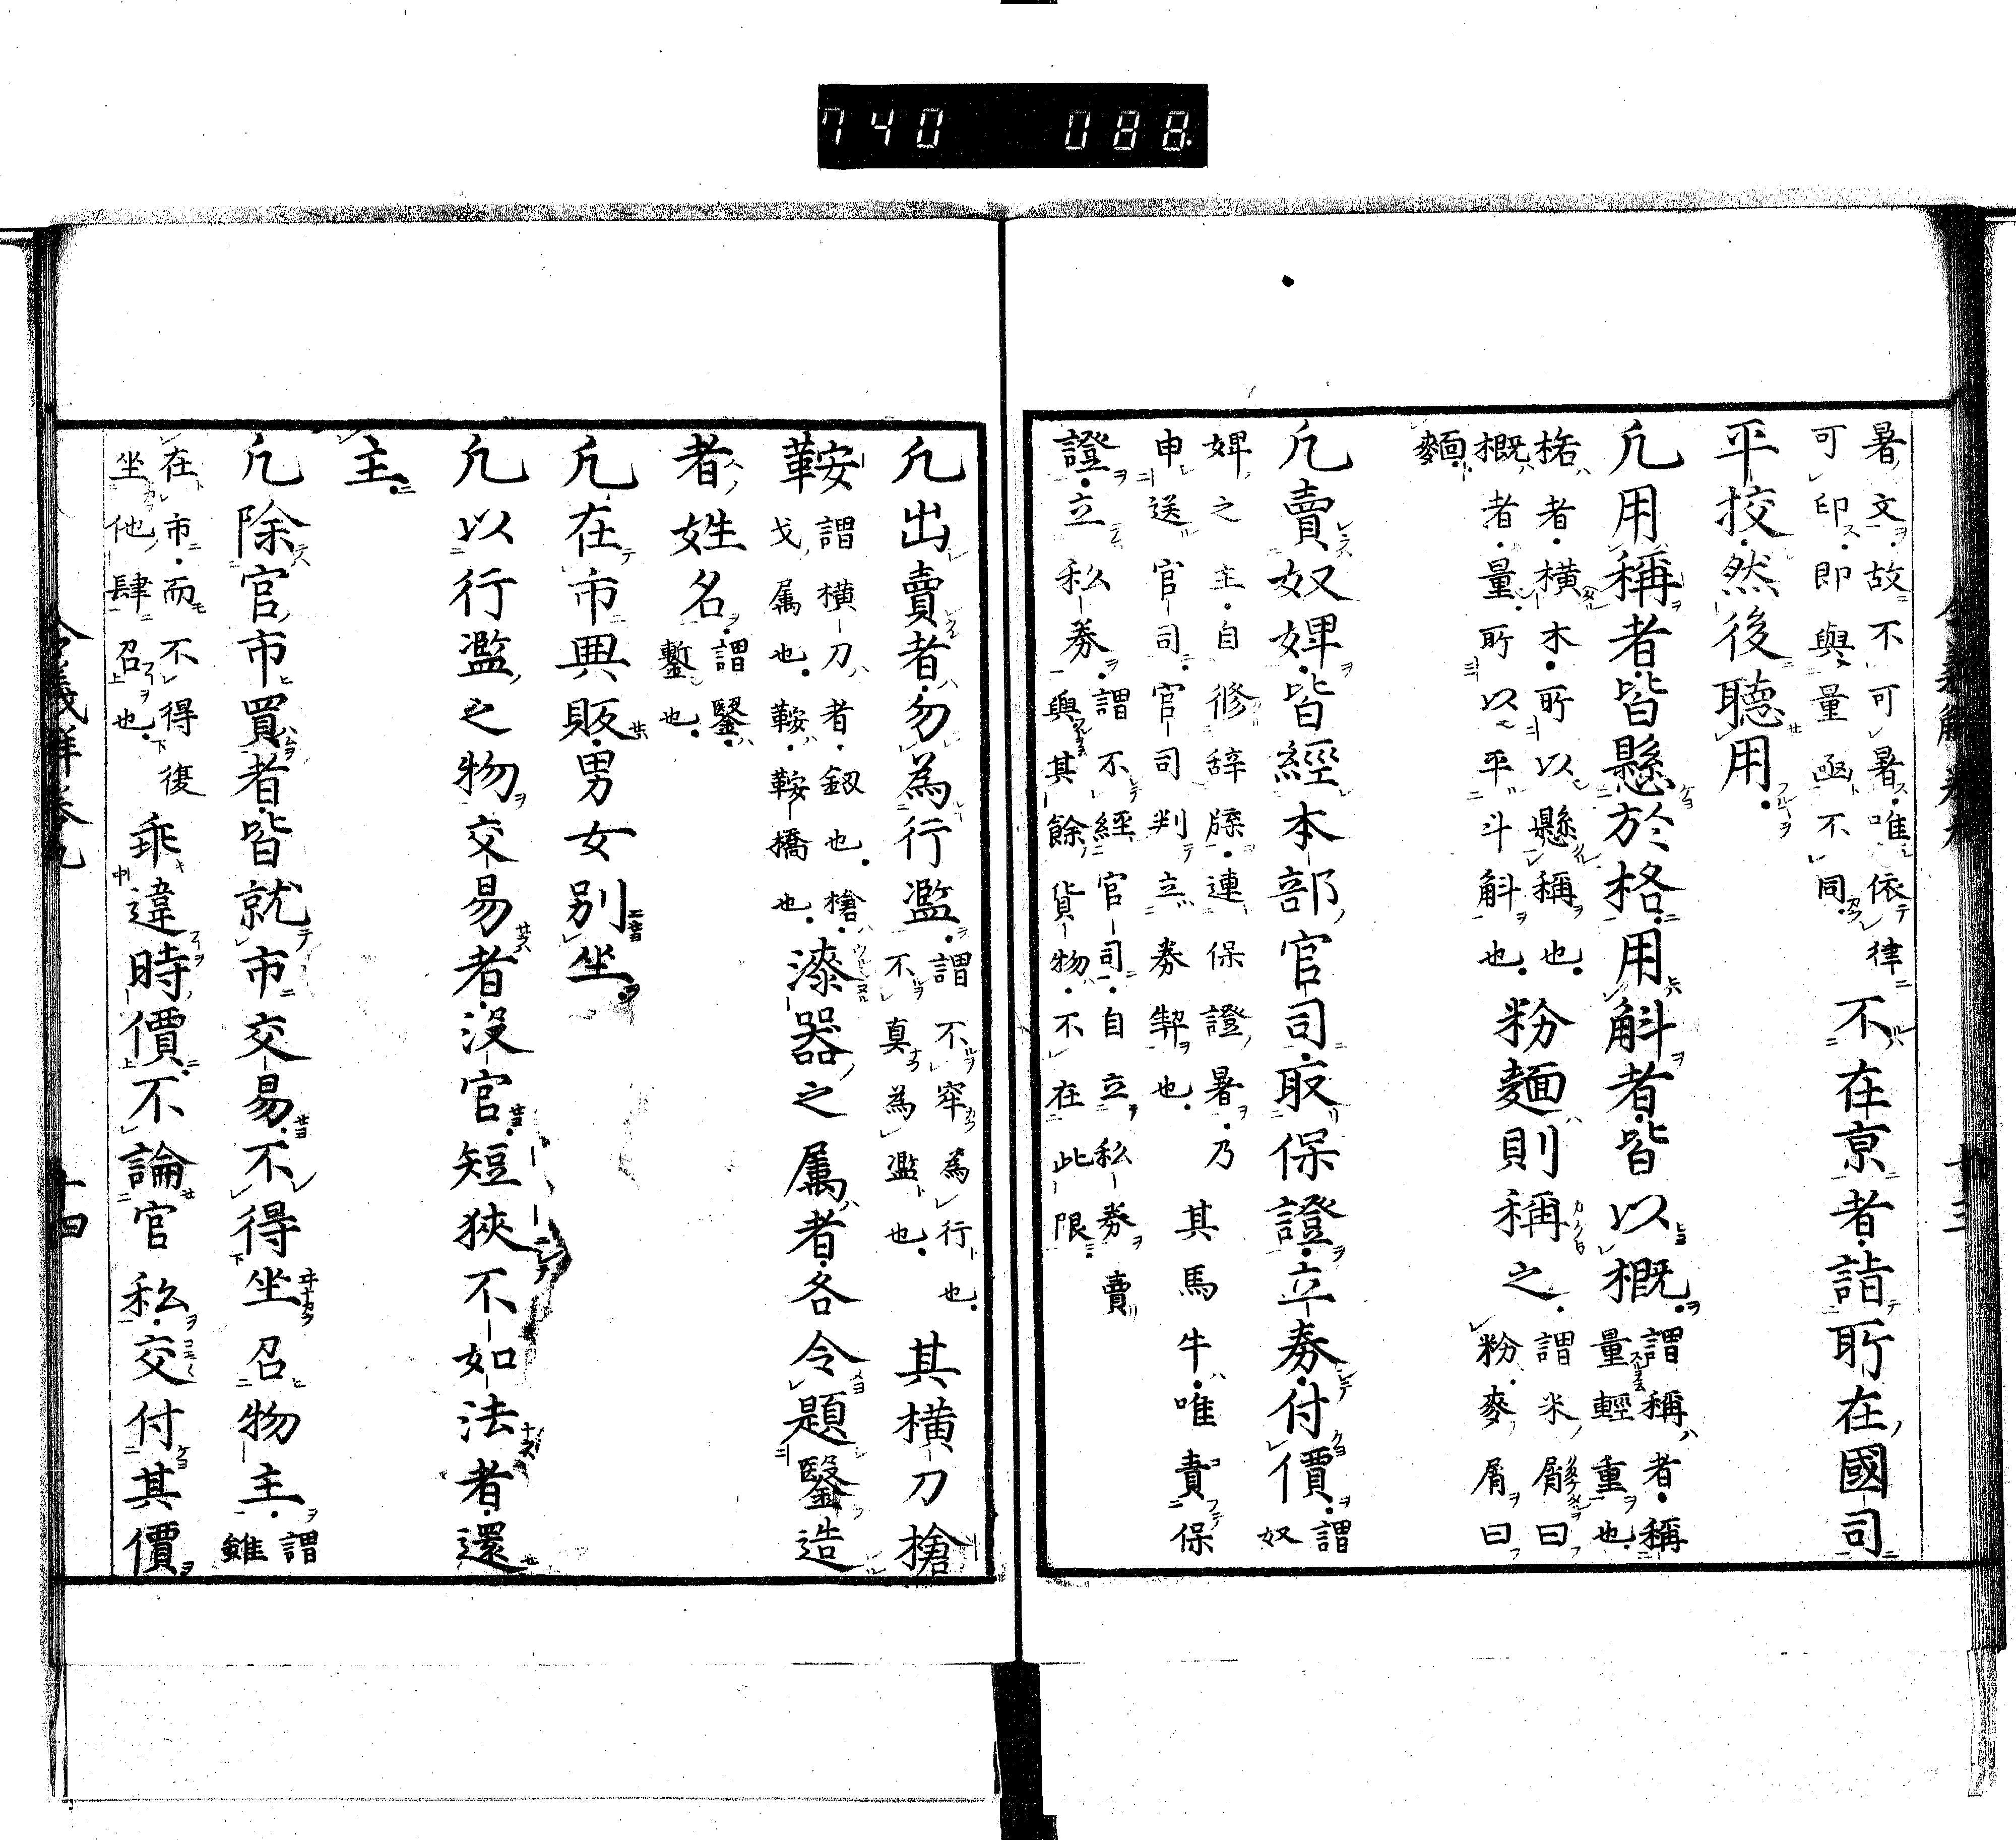 740 088
暑文故不可暑唯依律
可印即與量凾不同
不在京者詣所在國司
平挍然後聽用
凡用稱者皆懸於格用斛者皆以概
謂稱者稱
量輕重也
格者横木所以懸稱也
概者量所以平斗斛也
粉麵則稱之
謂米屑曰
粉麥屑曰
麵
凡賣奴婢皆經本部官司取保證立券付價
謂
奴
婢之主自修辞牒連保證暑乃
申送官司官司判立券契也
其馬牛唯責保
證立私券
謂不經官司自立私券賣
與其餘貨物不在此限
凡出賣者勿為行濫
謂不牢為行也
不真為濫也
其横刀槍
鞍
謂横刀者釼也槍
戈属也鞍鞍橋也
漆器之属者各令題鑿造
者姓名
謂鑿
鏨也
凡在市興販男女別坐
凡以行濫之物交易者沒官短狹不如法者還
主
凡除官市買者皆就市交易不得坐召物主
謂
雖
在市而不得復
坐他肆召也
乖違時價不論官私交付其價